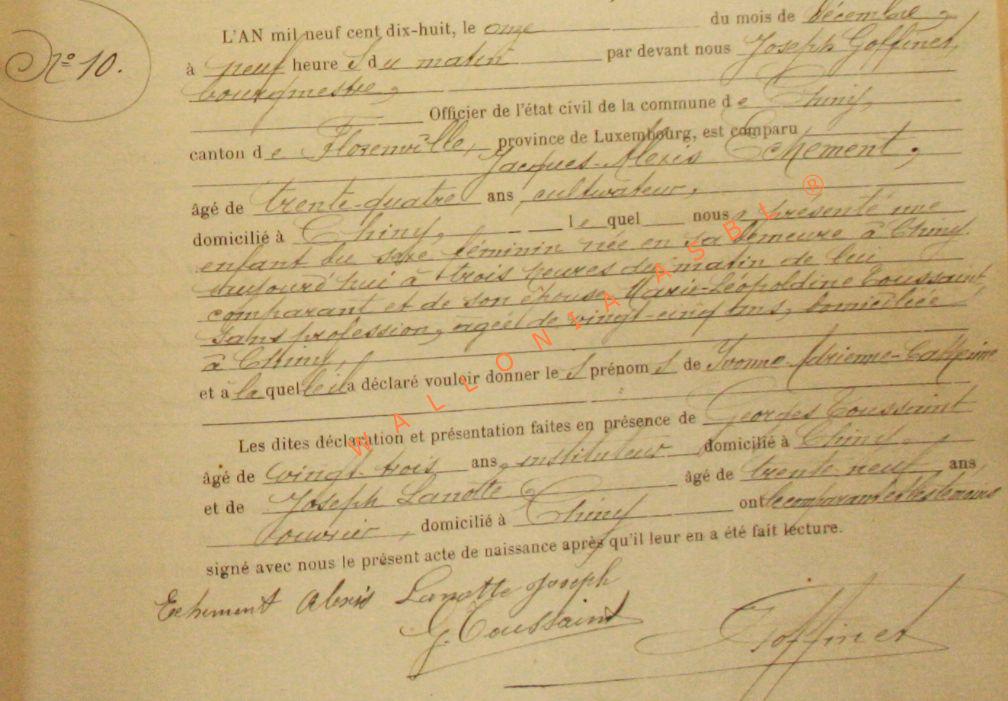 N° 10.
L'AN mil neuf cent dix-huit, le onze du mois de décembre,
à neuf heure s du matin par devant nous Joseph Goffinet,
bourgmestre,
Officier de l'état civil de la commune d e Chiny,
canton d e Florenville, province de Luxembourg, est comparu
Jacques-Alexis Echement,
âgé de trente-quatre ans, cultivateur,
domicilié à Chiny, le quel nous a présenté une
enfant du sexe féminin née en sa demeure à Chiny
aujourd'hui à trois heures du matin de lui
comparant et de son épouse Marie-Léopoldine Toussaint,
sans profession, agée de vingt-cinq ans, domiciliée
à Chiny,
et à la quel le il a déclaré vouloir donner le s prénom s de Yvonne-Adrienne-Catherine
Les dites déclaration et présentation faites en présence de Georges Toussaint
âgé de vingt-trois ans, instituteur domicilié à Chiny,
et de Joseph Lanotte âgé de trente-neuf ans
ouvrier, domicilié à Chiny ont le comparant et les témoins
signé avec nous le présent acte de naissance après qu'il leur en a été fait lecture.
Echement Alexis Lanotte Joseph
G. Toussaint Goffinet
WALLONIA ASBL ®